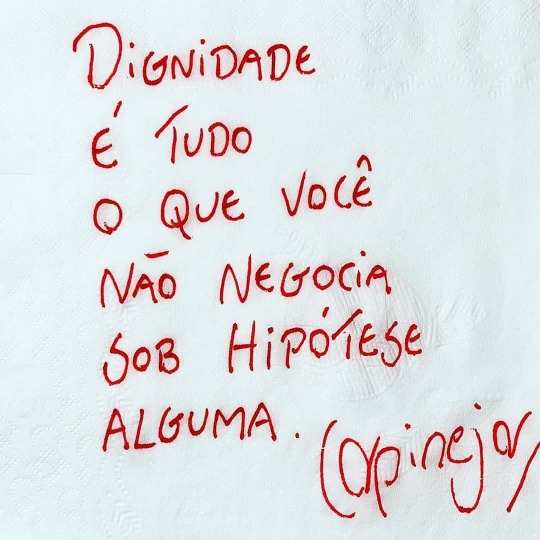 DIGNIDADE
É TUDO
O QUE VOCÊ
NÃO NEGOCIA
SOB HIPÓTESE
ALGUMA.
Carpinejar